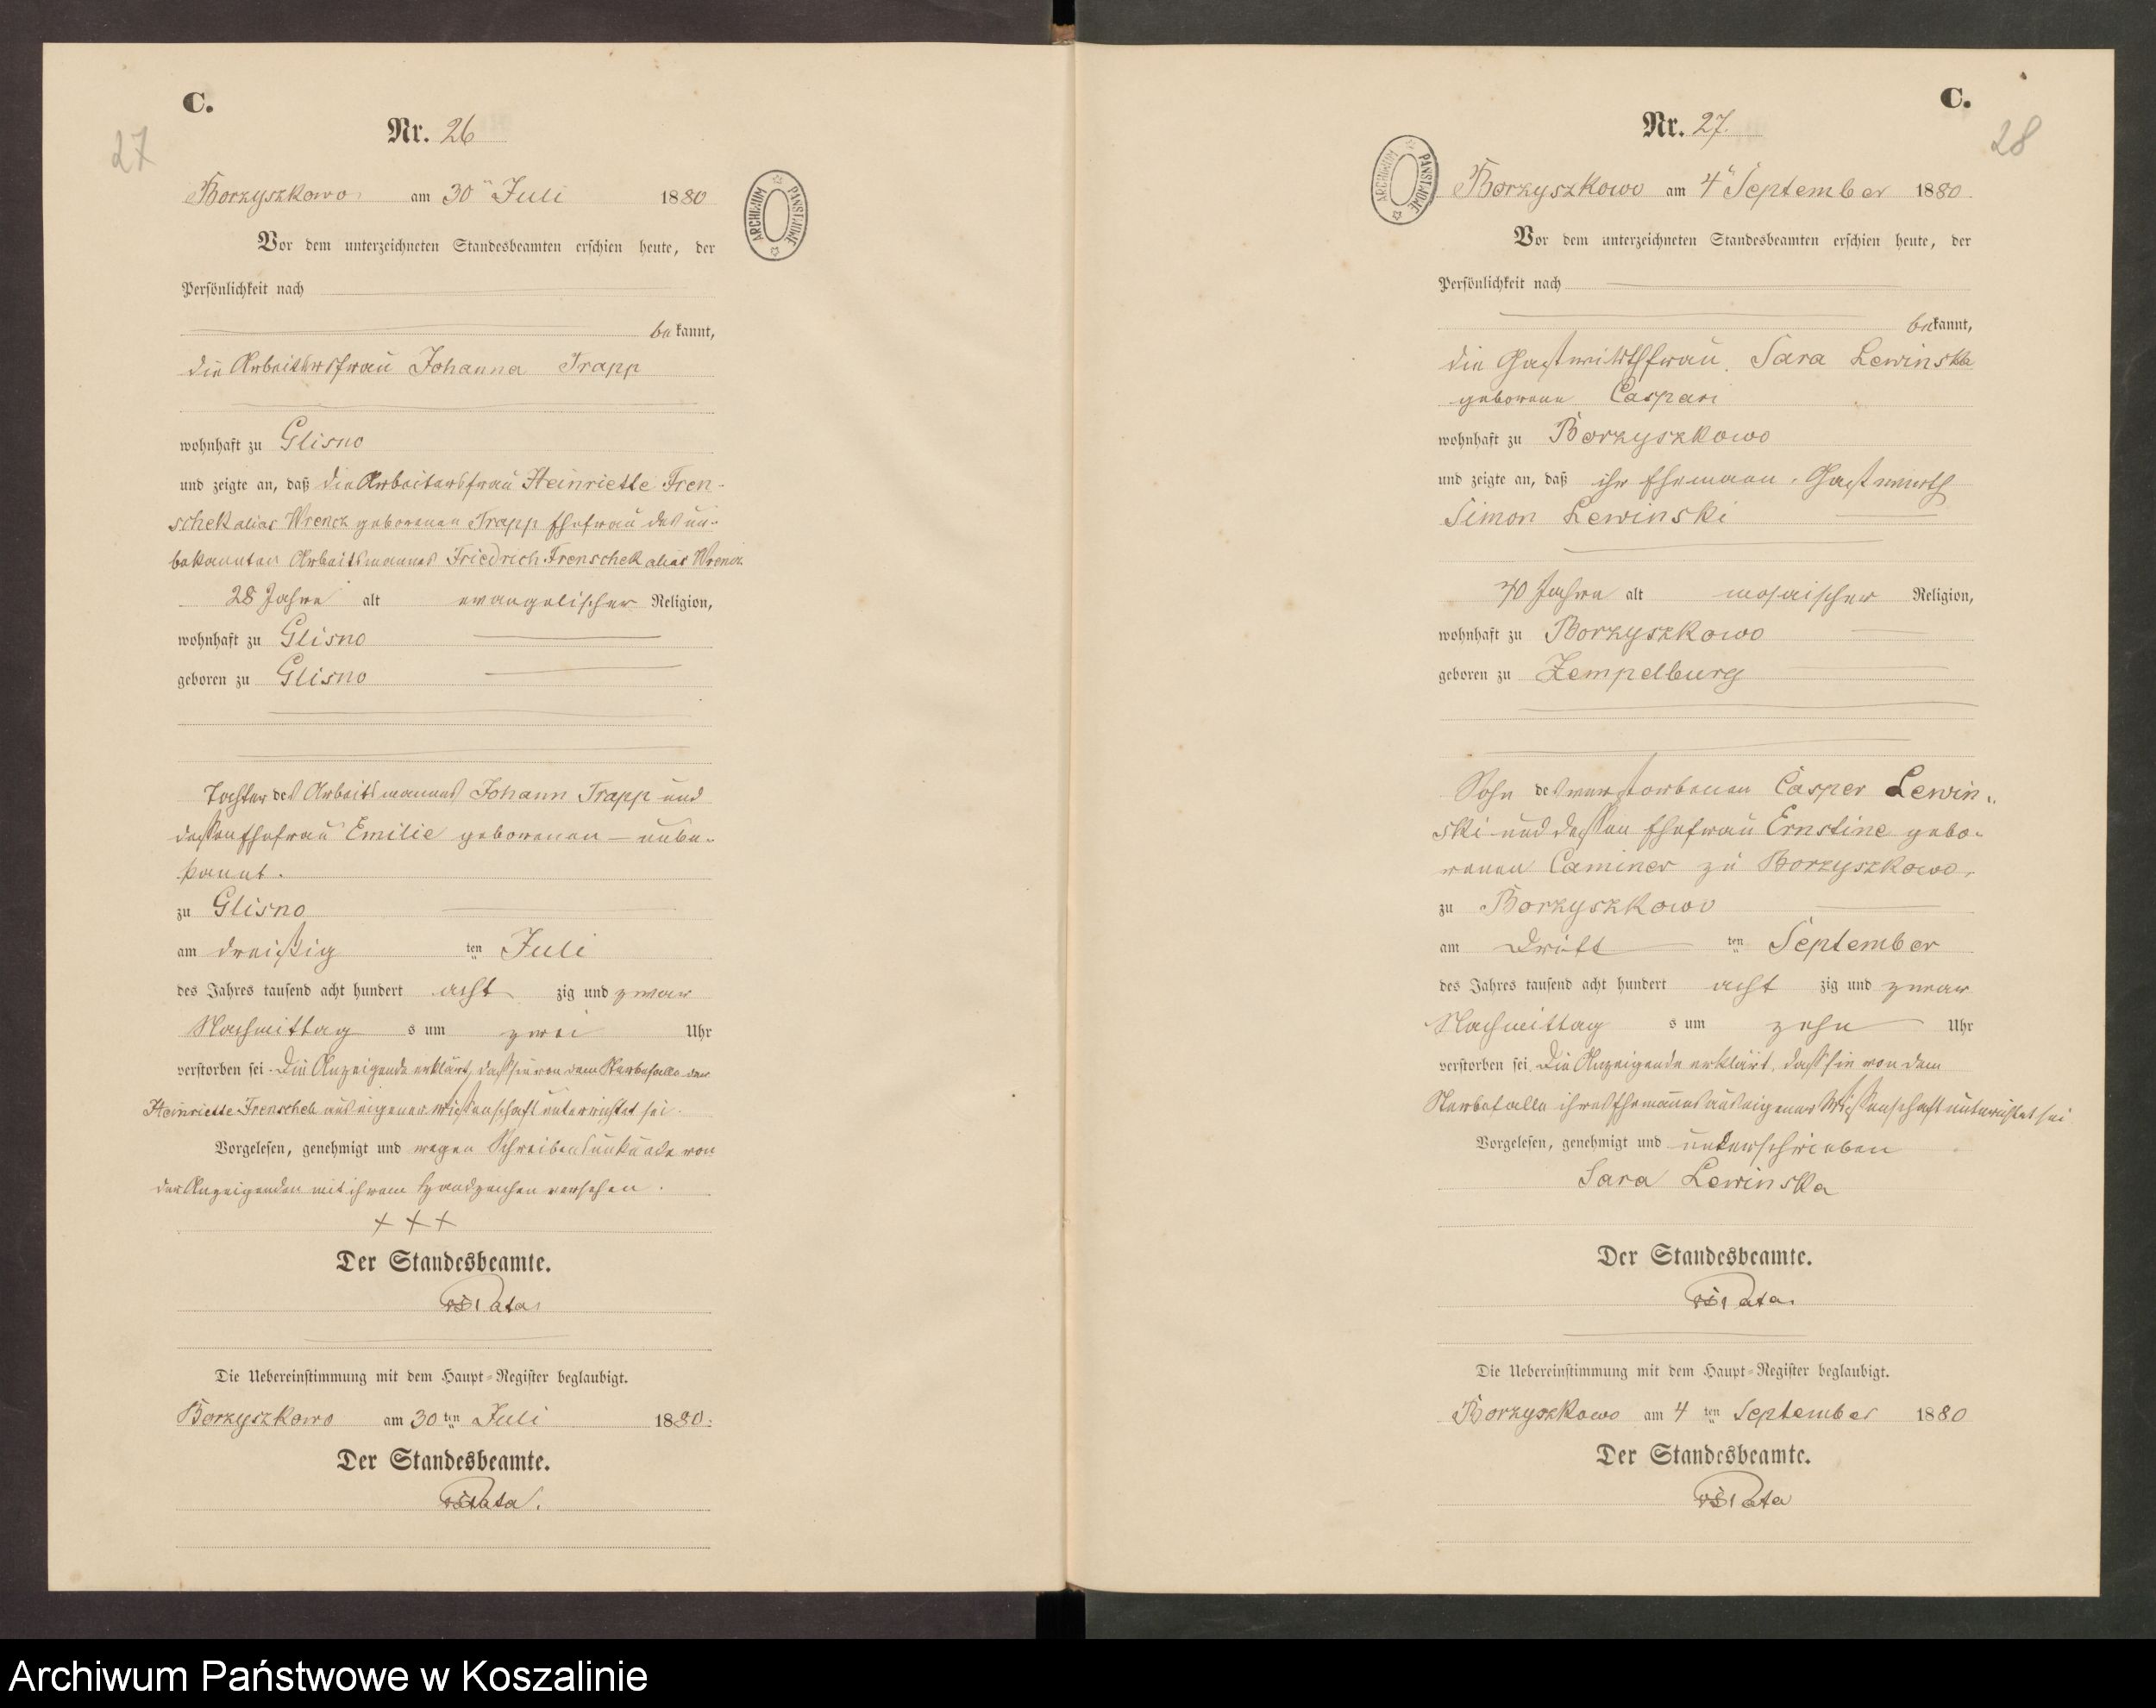 C.
27
Nr. 26
Borzyszkowo am 30ten Juli 1880
Vor dem unterzeichneten Standesbeamten erschien heute, der
Persönlichkeit nach
bekannt,
die Arbeitersfrau Johanna Trapp
wohnhaft zu Glisno
und zeigte an, daß die Arbeitersfrau Heinriette Fren-
schek alias Wrenck geborenen Trapp Ehefrau des un-
bekannten Arbeitsmannes Friedrich Frenschek alias Wrenck
28 Jahre alt evangelischer Religion,
wohnhaft zu Glisno
geboren zu Glisno
Tochter des Arbeitsmannes Johann Trapp und
dessen Ehefrau Emilie geborenen – unbe-
kannt.
zu Glisno
am dreißig ten Juli
des Jahres tausend acht hundert acht zig und zwar
Nachmittag s um zwei Uhr
verstorben sei. Die Anzeigende erklärt, daß sie von dem Sterbefalle der
Heinriette Frenschek aus eigener Wissenschaft unterrichtet sei.
Vorgelesen, genehmigt und wegen Schreibensunkunde von
der Anzeigenden mit ihrem Handzeichen versehen.
+ + +
Der Standesbeamte.
Pata.
Die Uebereinstimmung mit dem Haupt-Register beglaubigt.
Borzyszkowo am 30 ten Juli 1880.
Der Standesbeamte.
Pata.
ARCHIWUM PAŃSTWOWE
C.
28
Nr. 27.
ARCHIWUM PAŃSTWOWE
Borzyszkowo am 4ten September 1880.
Vor dem unterzeichneten Standesbeamten erschien heute, der
Persönlichkeit nach
bekannt,
die Gastwirthfrau Sara Lewinska
geborene Caspari
wohnhaft zu Borzyszkowo
und zeigte an, daß ihr Ehemann, Gastwirth
Simon Lewinski
70 Jahre alt mosaischer Religion,
wohnhaft zu Borzyszkowo
geboren zu Zempelburg
Sohn des verstorbenen Casper Lewin-
ski und dessen Ehefrau Ernstine gebo-
renen Caminer zu Borzyszkowo,
zu Borzyszkowo
am Dritt ten September
des Jahres tausend acht hundert acht zig und zwar
Nachmittag s um zehn Uhr
verstorben sei. Die Anzeigende erklärt, daß sie von dem
Sterbefalle ihres Ehemannes aus eigener Wissenschaft unterrichtet sei
Vorgelesen, genehmigt und unterschrieben
Sara Lewinska
Der Standesbeamte.
Pata.
Die Uebereinstimmung mit dem Haupt-Register beglaubigt.
Borzyszkowo am 4 ten September 1880
Der Standesbeamte.
Pata
Archiwum Państwowe w Koszalinie